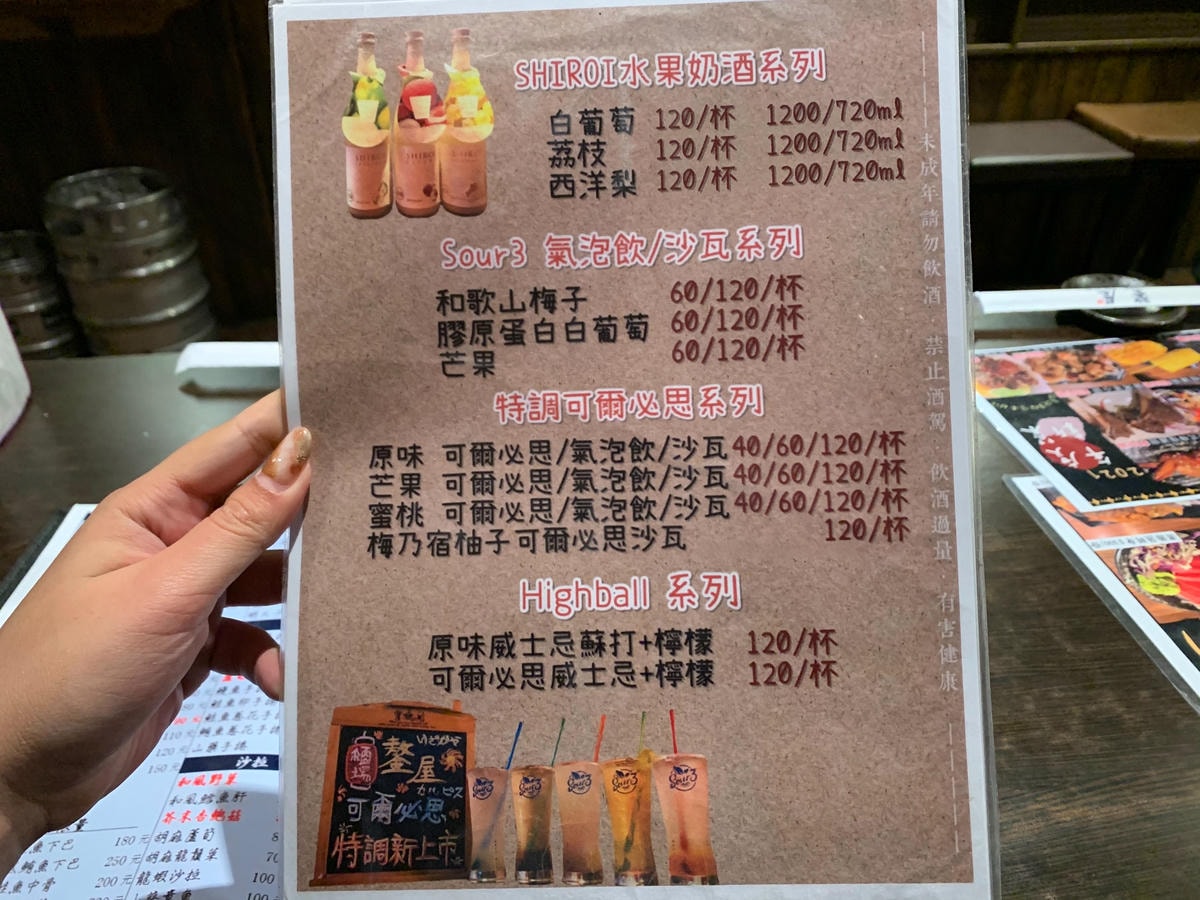 SHIROI水果奶酒系列
白葡萄 120/杯 1200/720ml
荔枝 120/杯 1200/720ml
西洋梨 120/杯 1200/720ml
Sour3 氣泡飲/沙瓦系列
和歌山梅子 60/120/杯
膠原蛋白白葡萄 60/120/杯
芒果 60/120/杯
特調可爾必思系列
原味 可爾必思/氣泡飲/沙瓦 40/60/120/杯
芒果 可爾必思/氣泡飲/沙瓦 40/60/120/杯
蜜桃 可爾必思/氣泡飲/沙瓦 40/60/120/杯
梅乃宿柚子可爾必思沙瓦 120/杯
Highball 系列
原味威士忌蘇打+檸檬 120/杯
可爾必思威士忌+檸檬 120/杯
未成年請勿飲酒 禁止酒駕 飲酒過量 有害健康
鏊屋
可爾必思
特調新上市
Sour3
Sour3
Sour3
Sour3
Sour3
SHIROI
沙拉
和風野菜
和風鱈魚肝
芥末杏鮑菇
胡麻蘆筍
胡麻龍鬚菜
龍蝦沙拉 100
魚下巴 180元
魚下巴 250元
魚中骨 200元
110元
120元 山藥手捲
150元
2021